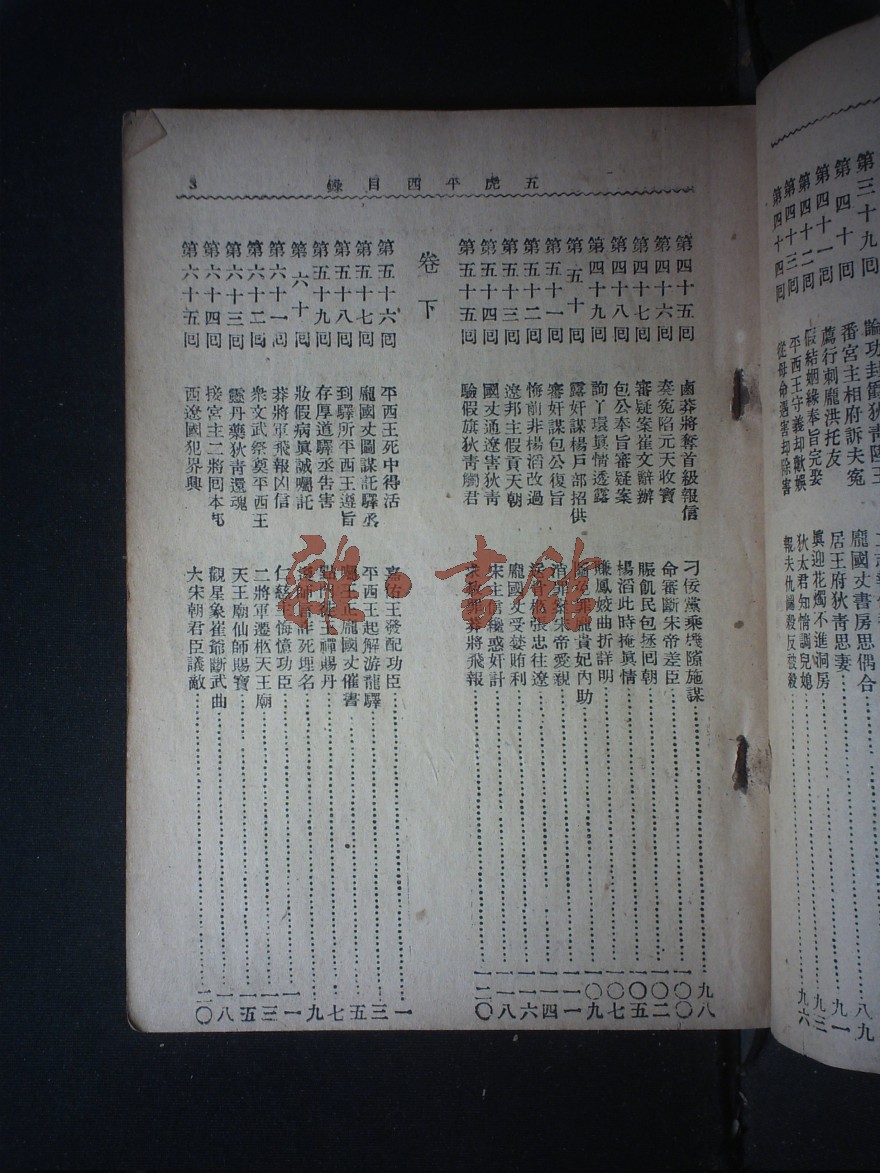 五虎平西目錄 3
第三十九回 論功封爵狄青陽王
第四十回 番宮主相府訴夫冤 龐國丈書房思偶合 八九
第四十一回 薦行刺龐洪托友 居王府狄青思妻 九一
第四十二回 假結姻緣奉旨完娶 奠迎花燭不進洞房 九三
第四十三回 平西王守義却歡娛 狄太君知情調兒媳 九六
第四十四回 從母命遇害却除害 報夫仇圖殺反被殺
第四十五回 鹵莽將奪首級報信 刁佞黨乘機隙施謀 九八
第四十六回 奏冤陷元天收寶 命審斷宋帝差臣 一〇〇
第四十七回 審疑案崔文辭辦 賑飢民包拯回朝 一〇二
第四十八回 包公奉旨審疑案 楊滔此時掩眞情 一〇五
第四十九回 詢丫環眞情透露 鳳姣曲折詳明 一〇七
第五十回 露奸謀楊戶部招供 龐貴妃內助 一〇九
第五十一回 審奸謀包公復旨 宋帝愛親 一一一
第五十二回 悔前非楊滔改過 張忠往遼 一一四
第五十三回 遼邦主假貢天朝 龐國丈受婪賄利 一一六
第五十四回 國丈通遼害狄青 宋主信讒惑奸計 一一八
第五十五回 驗假旗狄青觸君 莽將飛報 一二〇
卷下
第五十六回 平西王死中得活 嘉佑王發配功臣 一
第五十七回 龐國丈圖謀託驛丞 平西王起解游龍驛 三
第五十八回 到驛所平西王遵旨 龐國丈催書 五
第五十九回 存厚道驛丞告害 王禪賜丹 七
第六十回 妝假病眞誠囑託 詐死埋名 九
第六十一回 莽將軍飛報凶信 仁慈主悔憶功臣 一一
第六十二回 衆文武祭奠平西王 二將軍遷柩天王廟 一三
第六十三回 靈丹藥狄青還魂 天王廟仙師賜寶 一五
第六十四回 接宮主二將回本邦 觀星象崔爺斷武曲 一八
第六十五回 西遼國犯界興 大宋朝君臣議敵 二〇